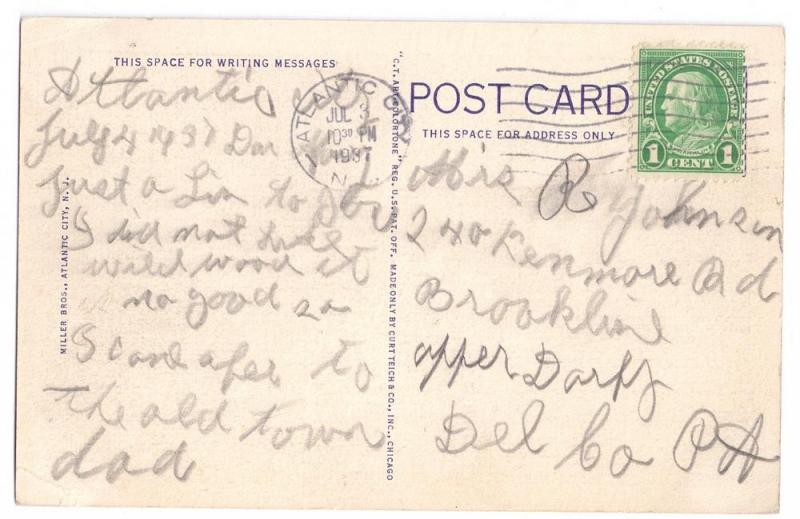 THIS SPACE FOR WRITING MESSAGES
Atlantic
July
Just a Lin to
I did not like
wildwood it
is no good so
I came after to
the old town
dad
MILLER BROS., ATLANTIC CITY, N. J.
"C.T. ART-COLORTONE" REG. U.S. PAT. OFF. MADE ONLY BY CURT TEICH & CO., INC., CHICAGO
ATLANTIC
JUL 3
10 30 PM
1937
N.
POST CARD
THIS SPACE FOR ADDRESS ONLY
UNITED STATES POSTAGE
1 CENT 1
Miss R Johnson
240 Kenmore Rd
Brookline
upper Darby
Del Co PA